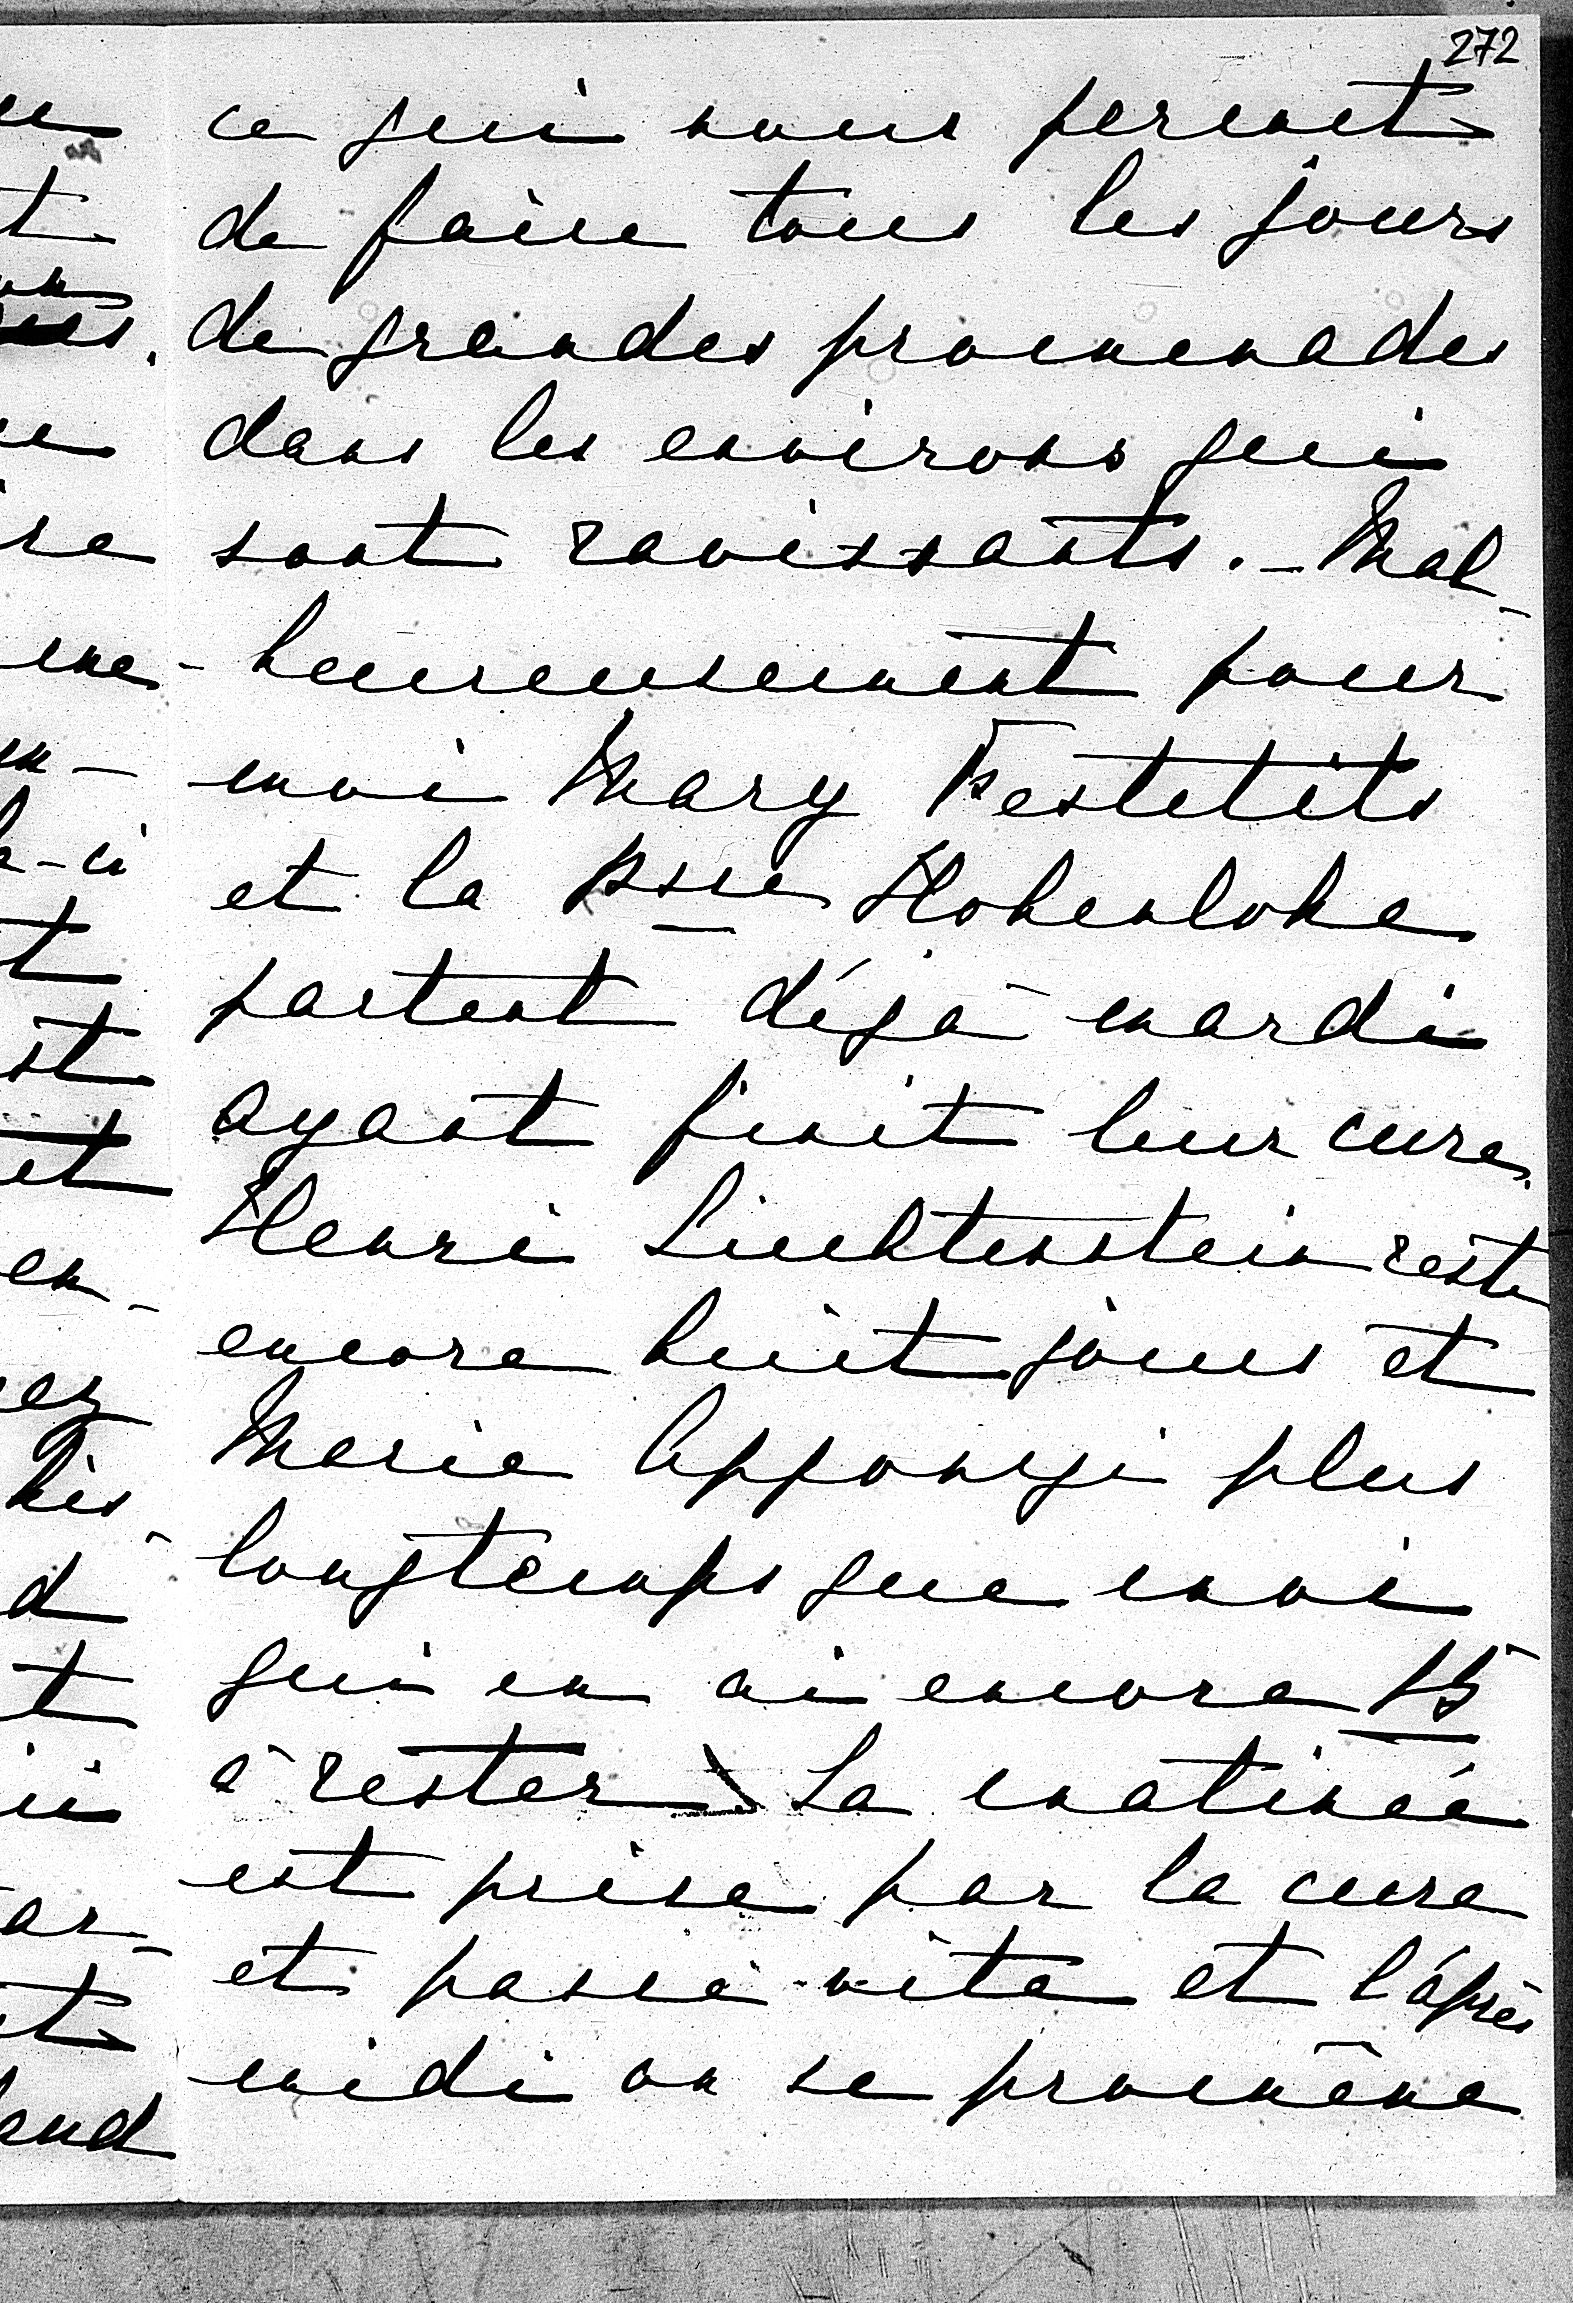 272
ce qui nous permet
de faire tous les jours
de grandes promenades
dans les environs qui
sont ravissants. - Mal-
- heureusement pour
moi Mary Festetits
et la Psse Hohenlohe
partent déjà mardi
ayant finit leur cure.
Henri Liechtenstein reste
encore huit jours et
Marie Apponyi plus
longtemps que moi
qui en ai encore 15
à rester La matinée
est prise par la cure
et passe vite et l'après
midi on se promène